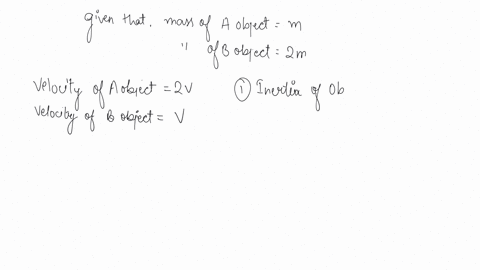 given that. mass of A object = m
" of B object = 2m
Velocity of A object = 2v
① Inertia of Ob
Velocity of B object = V